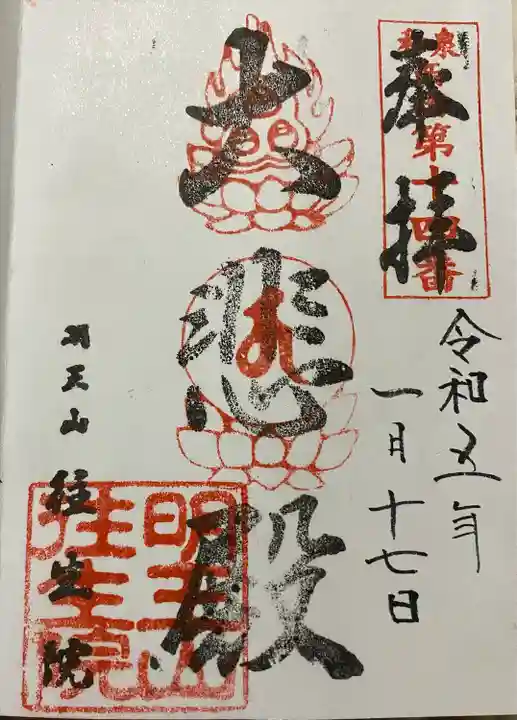 奉拝
第十四番
令和五年
一月十七日
大悲殿
明王山
往生院
山 往生院